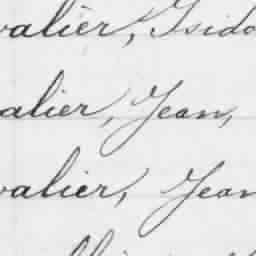 valier, Isido
alier, Jean,
valier, Jean